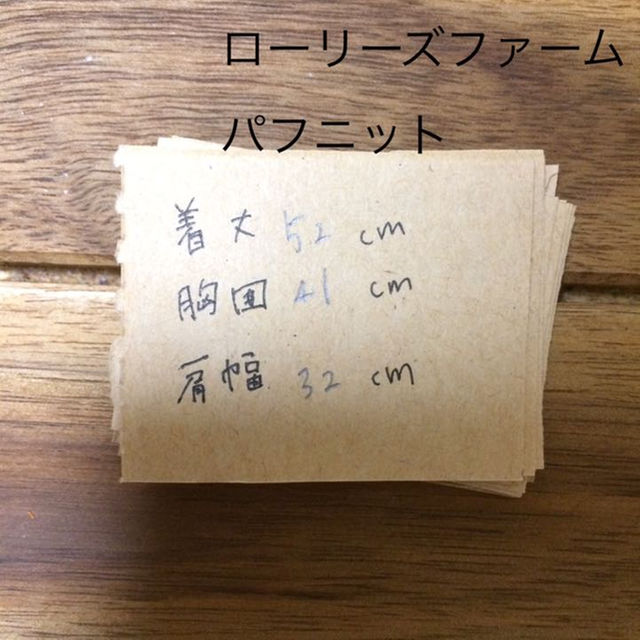 ローリーズファーム
パフニット
着丈 52 cm
胸囲 41 cm
肩幅 32 cm